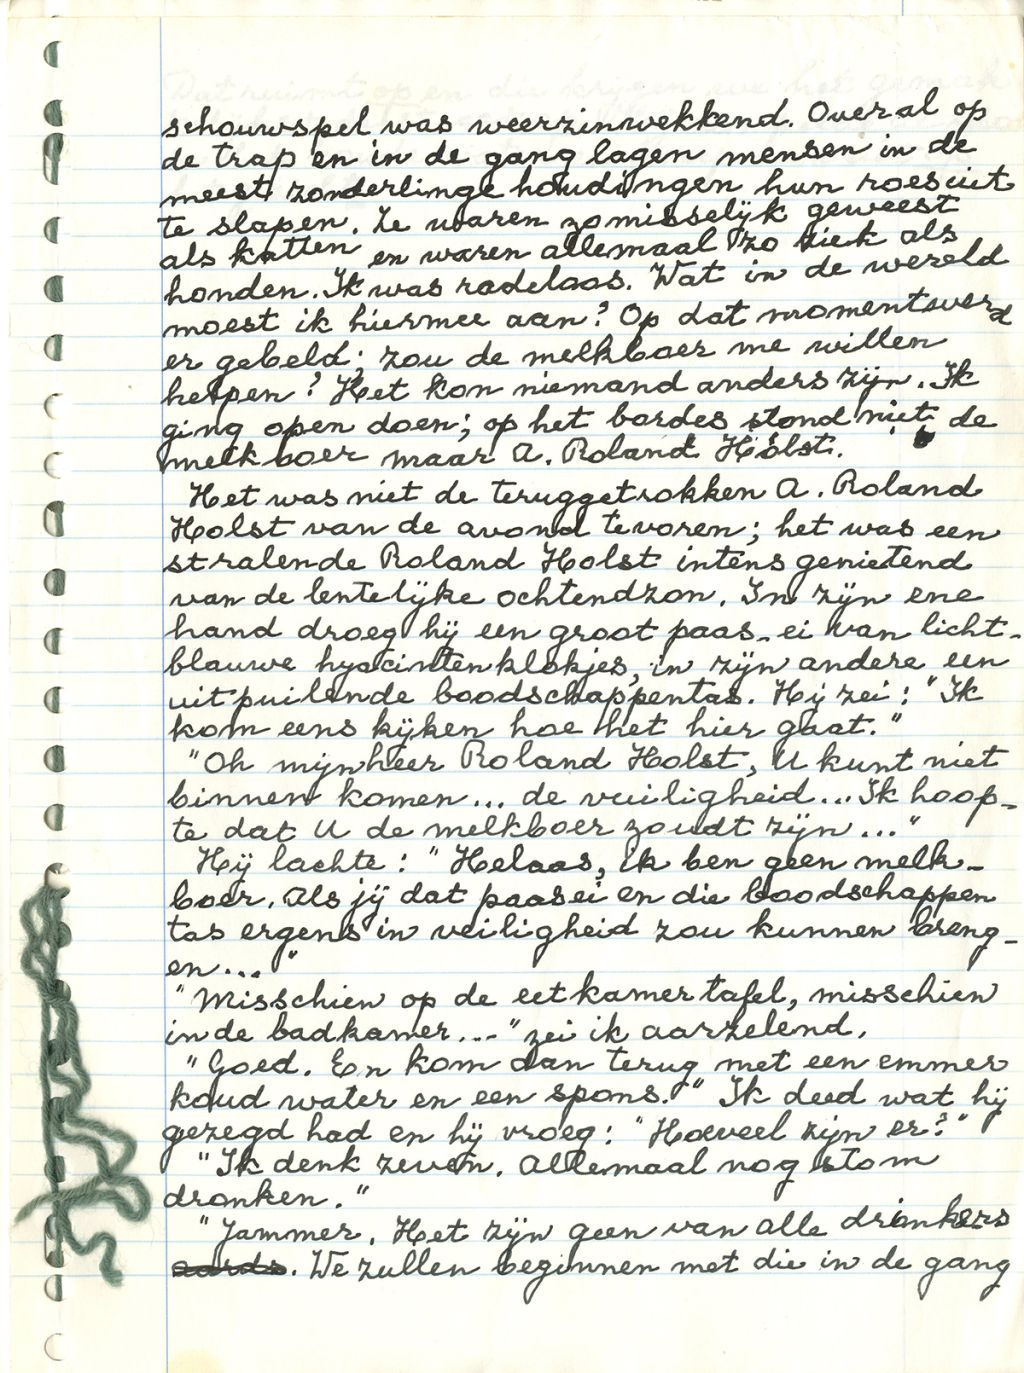 schouwspel was weerzinwekkend. Overal op
de trap en in de gang lagen mensen in de
meest zonderlinge houdingen hun roes uit
te slapen. Ze waren zo misselijk geweest
als katten en waren allemaal zo ziek als
honden. Ik was radeloos. Wat in de wereld
moest ik hiermee aan? Op dat moment werd
er gebeld; zou de melkboer me willen
helpen? Het kon niemand anders zijn. Ik
ging open doen; op het bordes stond niet de
melkboer maar A. Roland Holst.
Het was niet de teruggetrokken A. Roland
Holst van de avond tevoren; het was een
stralende Roland Holst intens genietend
van de lentelijke ochtendzon. In zijn ene
hand droeg hij een groot paas-ei van licht-
blauwe hyacintenklokjes, in zijn andere een
uitpuilende boodschappentas. Hij zei: "Ik
kom eens kijken hoe het hier gaat."
"Oh mijnheer Roland Holst, U kunt niet
binnen komen... de vuiligheid... Ik hoop-
te dat U de melkboer zoudt zijn..."
Hij lachte: "Helaas, ik ben geen melk-
boer. Als jij dat paasei en die boodschappen
tas ergens in veiligheid zou kunnen breng-
en..."
"Misschien op de eetkamertafel, misschien
in de badkamer..." zei ik aarzelend.
"Goed. En kom dan terug met een emmer
koud water en een spons." Ik deed wat hij
gezegd had en hij vroeg: "Hoeveel zijn er?"
"Ik denk zeven. Allemaal nog stom
dronken."
"Jammer. Het zijn geen van alle drinkers
aards. We zullen beginnen met die in de gang